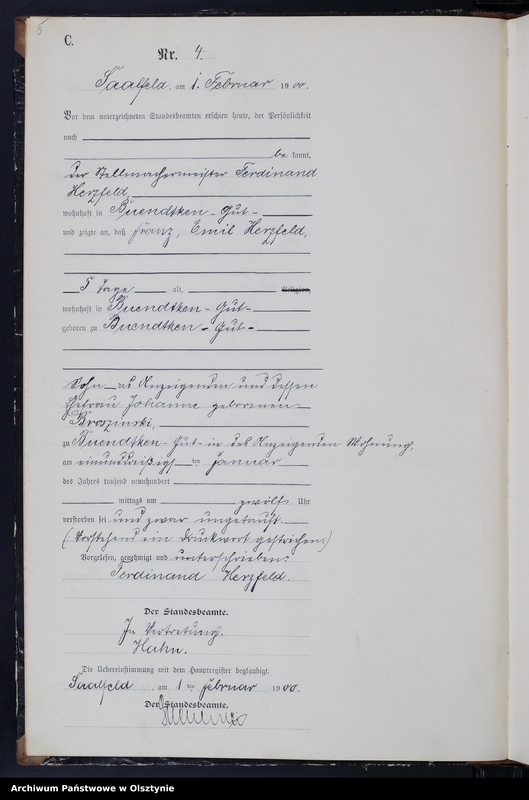 5
C.
Nr. 4.
Saalfeld, am 1. Februar 1900.
Vor dem unterzeichneten Standesbeamten erschien heute, der Persönlichkeit
nach
be kannt,
der Stellmachermeister Ferdinand
Herzfeld,
wohnhaft in Buendtken - Gut -
und zeigte an, daß Franz, Emil Herzfeld,
5 Tage alt, Religion,
wohnhaft in Buendtken - Gut -
geboren zu Buendtken - Gut -
Sohn des Anzeigenden und dessen
Ehefrau Johanne geborenen
Broszinski,
zu Buendtken - Gut - in des Anzeigenden Wohnung,
am einunddreißigsten Januar
des Jahrs tausend neunhundert
mittags um zwölf Uhr
verstorben sei und zwar ungetauft.
(Vorstehend ein Druckwort gestrichen.)
Vorgelesen, genehmigt und unterschrieben:
Ferdinand Herzfeld.
Der Standesbeamte.
In Vertretung.
Hahn.
Die Uebereinstimmung mit dem Hauptregister beglaubigt.
Saalfeld, am 1ten Februar 1900.
Der Standesbeamte.
Archiwum Państwowe w Olsztynie